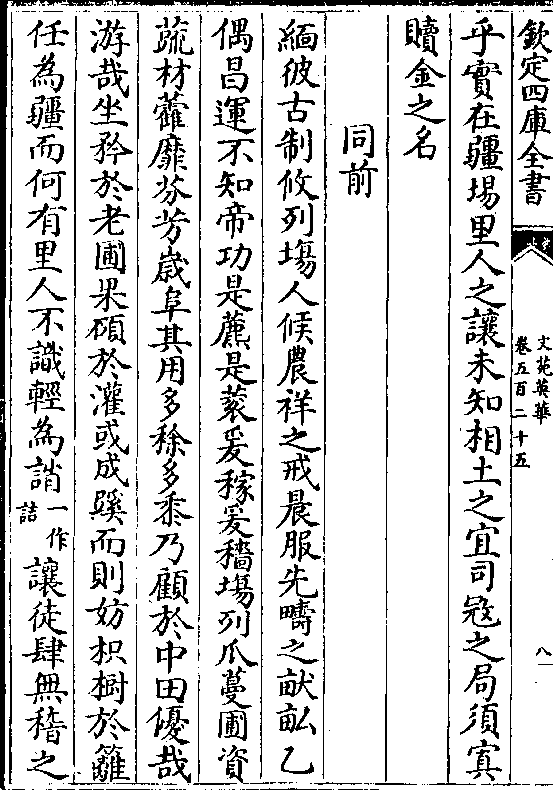 欽定四庫全書
文苑英華
卷五百二十五
八
乎實在疆場里人之讓未知相土之宜司寇之局須寘
贖金之名
同前
緬彼古制攸列場人候農祥之戒晨服先疇之畎畝乙
偶昌運不知帝功是藨是蔉爰稼爰穡場列爪蔓圃資
蔬材藿靡芬芳嵗阜其用多稌多黍乃顧於中田優哉
游哉坐矜於老圃果碩於灌或成蹊而則妨枳樹於籬
任為疆而何有里人不識輕為誚一作詰讓徒肆無稽之